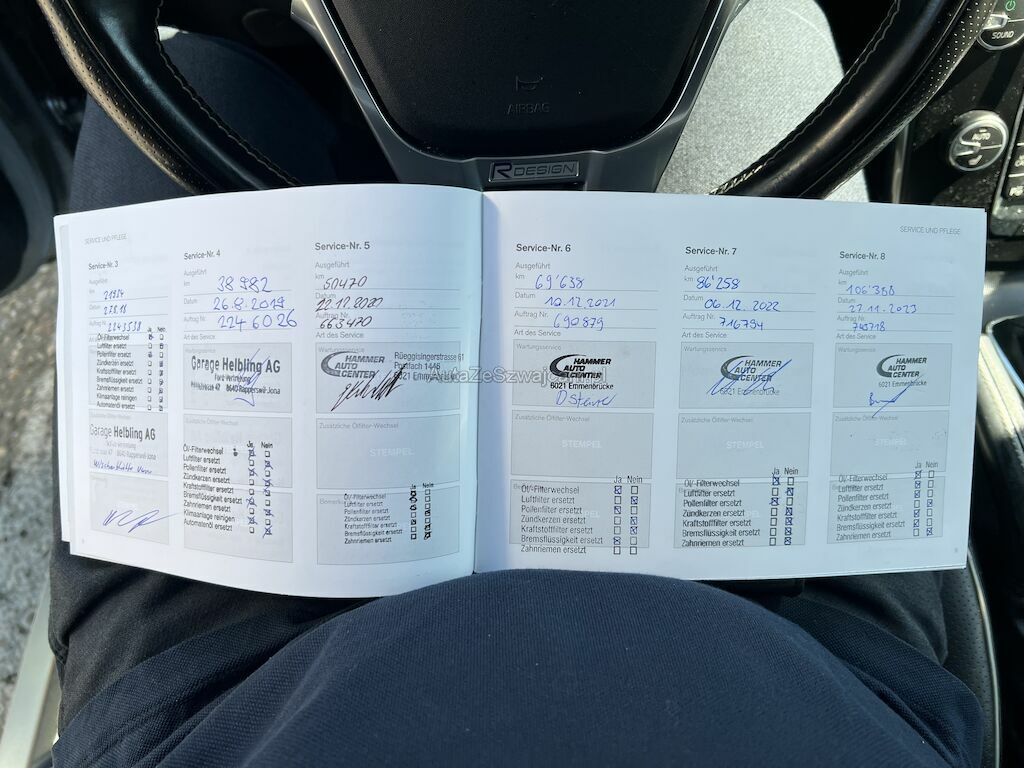 SOUND
AIRBAG
AUTO
R DESIGN
SERVICE UND PFLEGE
Service-Nr. 3
Ausgeführt
km
Datum
Auftrag Nr.
Ölfilterwechsel
Luftfilter ersetzt
Pollenfilter ersetzt
Zündkerzen ersetzt
Kraftstoffilter ersetzt
Bremsflüssigkeit ersetzt
Zahnriemen ersetzt
Klimaanlage reinigen
Automatenöl ersetzt
Ja Nein
Garage Helbling AG
8640 Rapperswil-Jona
Service-Nr. 4
Ausgeführt
km 38 982
Datum 26.8.2019
Auftrag Nr. 2246026
Art des Service
Wartungsservice
Garage Helbling AG
Ford Vertretung
8640 Rapperswil-Jona
Zusätzliche Ölfilter-Wechsel
Ja Nein
Öl/-Filterwechsel
Luftfilter ersetzt
Pollenfilter ersetzt
Zündkerzen ersetzt
Kraftstoffilter ersetzt
Bremsflüssigkeit ersetzt
Zahnriemen ersetzt
Klimaanlage reinigen
Automatenöl ersetzt
Service-Nr. 5
Ausgeführt
km 50470
Datum 22.12.2020
Auftrag Nr. 663470
Art des Service
Wartungsservice
HAMMER
AUTO
CENTER
Rüeggisingerstrasse 61
Postfach 1446
6021 Emmenbrücke
Zusätzliche Ölfilter-Wechsel
STEMPEL
Öl/-Filterwechsel
Luftfilter ersetzt
Pollenfilter ersetzt
Zündkerzen ersetzt
Kraftstoffilter ersetzt
Bremsflüssigkeit ersetzt
Zahnriemen ersetzt
SERVICE UND PFLEGE
Service-Nr. 6
Ausgeführt
km 69'638
Datum 10.12.2021
Auftrag Nr. 690879
Art des Service
Wartungsservice
HAMMER
AUTO
CENTER
6021 Emmenbrücke
Zusätzliche Ölfilter-Wechsel
STEMPEL
Ja Nein
Öl/-Filterwechsel
Luftfilter ersetzt
Pollenfilter ersetzt
Zündkerzen ersetzt
Kraftstofffilter ersetzt
Bremsflüssigkeit ersetzt
Zahnriemen ersetzt
Service-Nr. 7
Ausgeführt
km 86'258
Datum 06.12.2022
Auftrag Nr. 716794
Art des Service
Wartungsservice
HAMMER
AUTO
CENTER
6021 Emmenbrücke
Zusätzliche Ölfilter-Wechsel
STEMPEL
Ja Nein
Öl/-Filterwechsel
Luftfilter ersetzt
Pollenfilter ersetzt
Zündkerzen ersetzt
Kraftstofffilter ersetzt
Bremsflüssigkeit ersetzt
Zahnriemen ersetzt
Service-Nr. 8
Ausgeführt
km
Datum 27.11.2023
Auftrag Nr. 743718
Art des Service
Wartungsservice
HAMMER
AUTO
CENTER
6021 Emmenbrücke
Zusätzliche Ölfilter-Wechsel
STEMPEL
Ja Nein
Öl/-Filterwechsel
Luftfilter ersetzt
Pollenfilter ersetzt
Zündkerzen ersetzt
Kraftstofffilter ersetzt
Bremsflüssigkeit ersetzt
Zahnriemen ersetzt